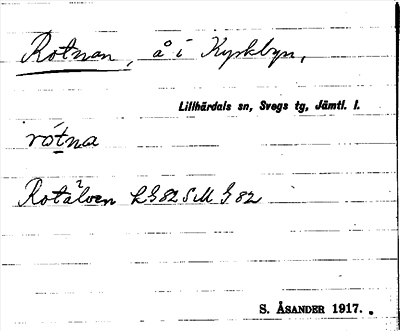 Rotnan, å i Kyrkbyn,
Lillhärdals sn, Svegs tg, Jämtl. l.
rótna
Rotälven LG82 SoM G 82
S. ÅSANDER 1917.